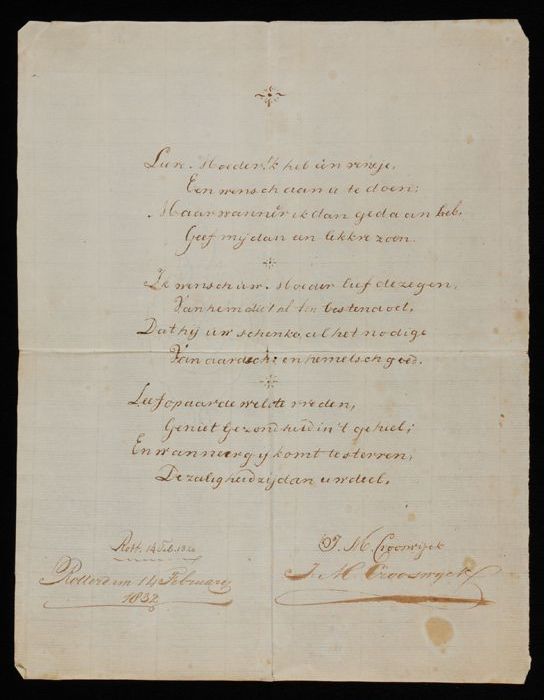 Lieve Moeder! 'k heb een reisje,
Een wensch aan u te doen;
Maar wanneer ik dan gedaan heb,
Geef mij dan en lekkre zoen.
Ik wensch uw Moeder lief de zegen,
Van hem die 't al ten besten doet,
Dat hij uw schenke, al het nodige
Van aardsch: en hemelsch goed.
Leef op aarde wel te vreden,
Geniet Gezondheid in 't geheel;
En wanneer gij komt te sterven,
De zaligheid zij dan uw deel.
Rott. 14 Feb. 1832
J. M. Crooswijck
Rotterdm 14 February
J. M. Crooswyck
1832